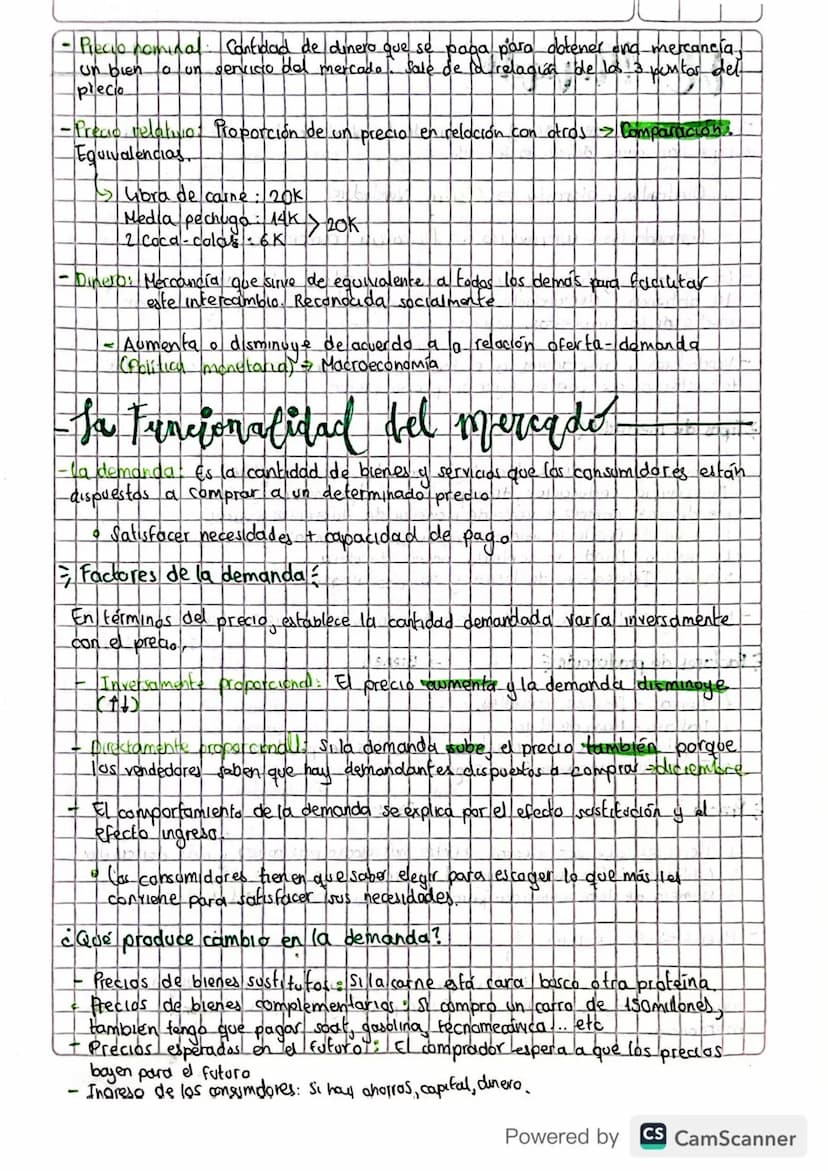 - Precio nominal: Cantidad de dinero que se paga para obtener una mercancía,
un bien o un servicio del mercado. Sale de la relación de los 3 puntos del
precio
- Precio relativo: Proporción de un precio en relación con otros → Comparación.
Equivalencias.
↳ Libra de carne: 20K
Media pechuga: 14K > 20K
2 Coca-colas: 6K
- Dinero: Mercancía que sirve de equivalente a todas las demás para facilitar
este intercambio. Reconocida socialmente
- Aumenta o disminuye de acuerdo a la relación oferta-demanda
(Política monetaria) → Macroeconomía
- La Funcionalidad del mercado
- La demanda: Es la cantidad de bienes y servicios que los consumidores están
dispuestos a comprar a un determinado precio
• Satisfacer necesidades + capacidad de pago
Factores de la demanda:
En términos del precio, establece la cantidad demandada varía inversamente
con el precio,
- Inversamente proporcional: El precio aumenta y la demanda disminuye
(↑↓)
- Directamente proporcional: Si la demanda sube, el precio también porque
los vendedores saben que hay demandantes dispuestos a comprar → diciembre
- El comportamiento de la demanda se explica por el efecto sustitución y el
efecto ingreso.
• Los consumidores tienen que saber elegir para escoger lo que más les
conviene para satisfacer sus necesidades.
¿Qué produce cambio en la demanda?
- Precios de bienes sustitutos: Si la carne está cara busco otra proteína.
- Precios de bienes complementarios: Si compro un carro de 150millones,
también tengo que pagar soat, gasolina, tecnomecánica... etc
- Precios esperados en el futuro: El comprador espera a que los precios
bajen para el futuro
- Ingreso de los consumidores: Si hay ahorros, capital, dinero.
Powered by CS CamScanner